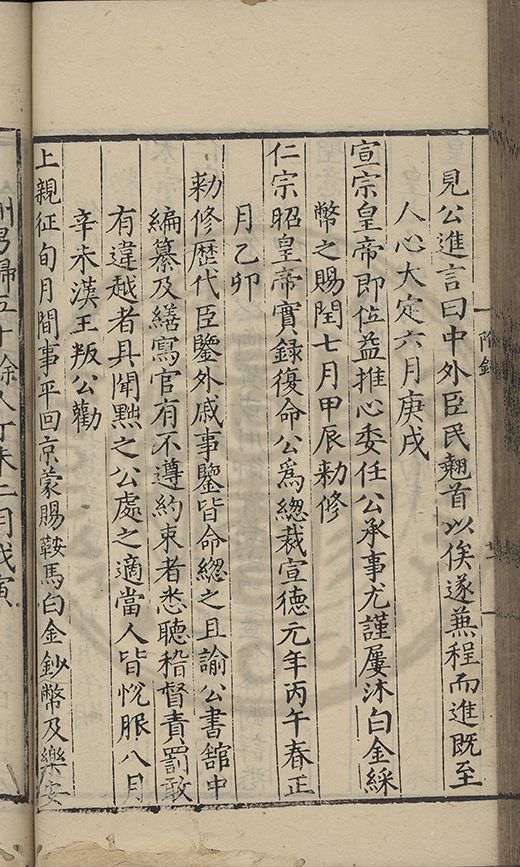 見公進言曰中外臣民翹首以俟遂兼程而進既至
人心大定六月庚戌
宣宗皇帝即位益推心委任公承事尤謹屢沐白金綵
幣之賜閏七月甲辰勑修
仁宗昭皇帝實録復命公爲總裁宣德元年丙午春正
月乙卯
勑修歴代臣鑒外戚事鑒皆命緫之且諭公書舘中
編纂及繕寫官有不遵約束者悉聽稽督責罰敢
有違越者具聞黜之公處之適當人皆悅服八月
辛未漢王叛公勸
上親征旬月間事平回京蒙賜鞍馬白金鈔幣及樂安
男婦五十餘人丁未二月戊寅
附録